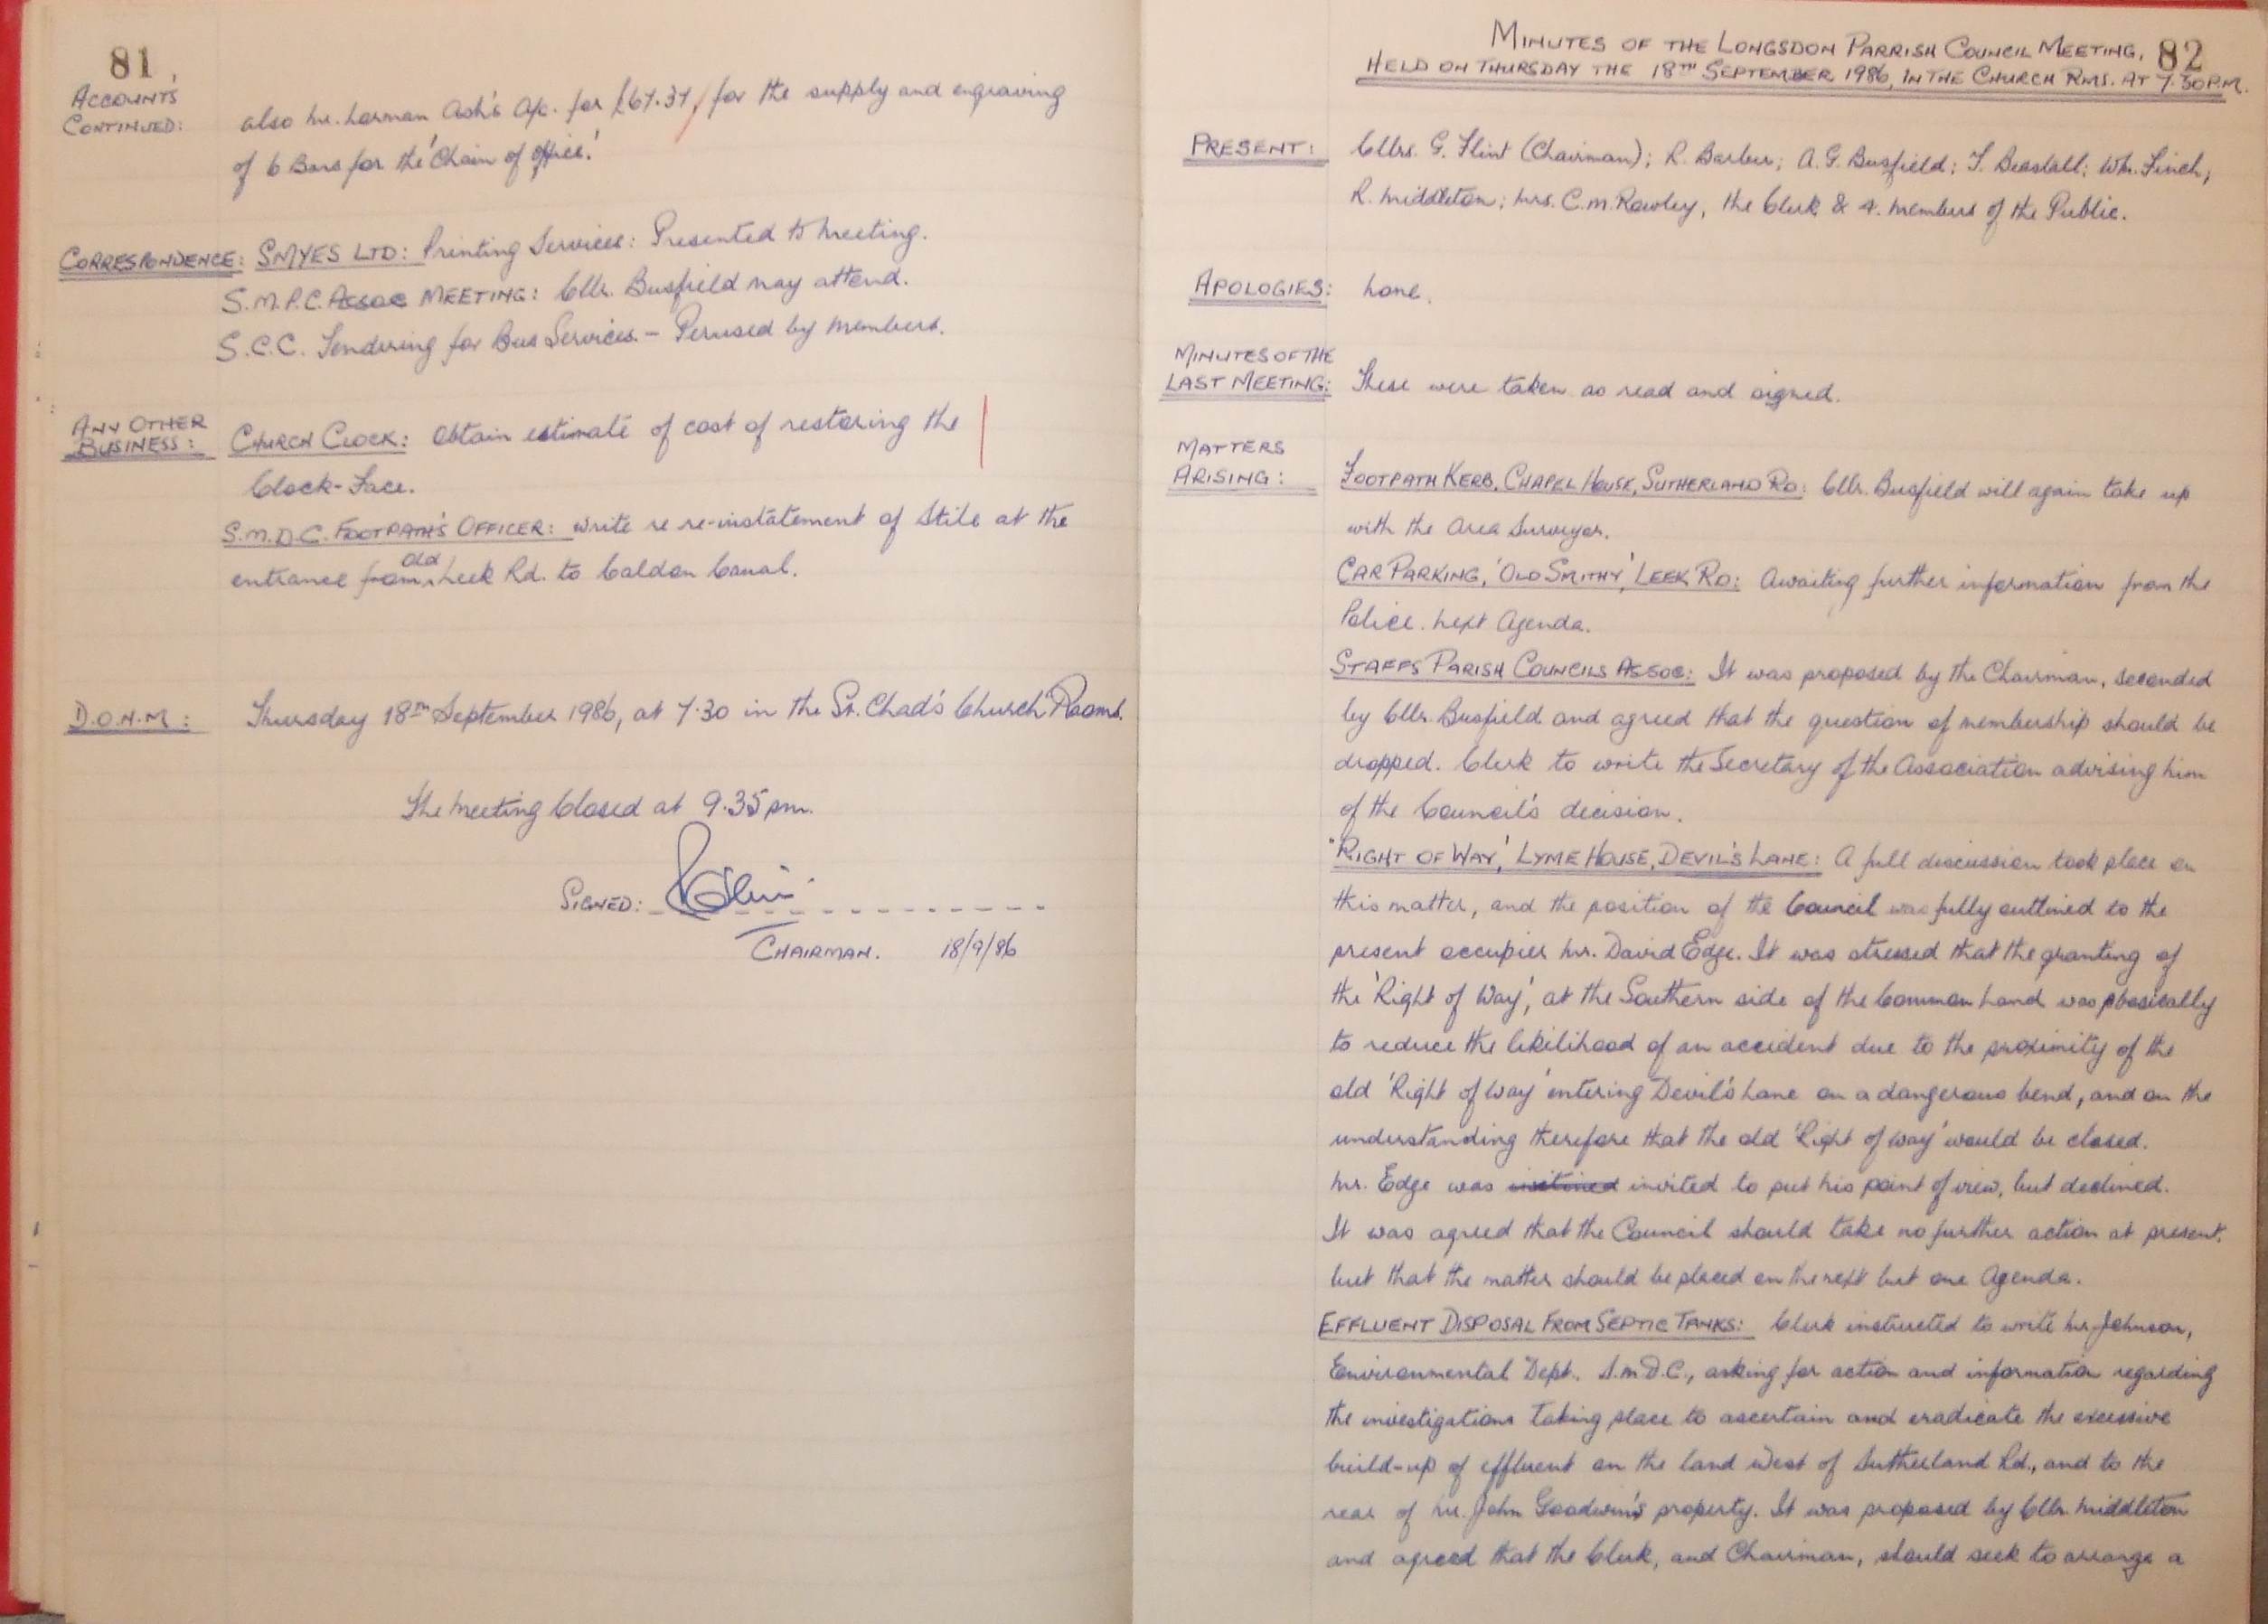 81.
ACCOUNTS
CONTINUED:
also Mr. Norman Ash's A/c. for £67.37, for the supply and engraving
of 6 Bars for the 'Chain of Office.'
CORRESPONDENCE: SMYES LTD: Printing Services: Presented to Meeting.
S.M.P.C. Assoc MEETING: Cllr. Busfield may attend.
S.C.C. Tendering for Bus Services. - Perused by Members.
ANY OTHER
BUSINESS:
CHURCH CLOCK: Obtain estimate of cost of restoring the
Clock-Face.
S.M.D.C. FOOTPATH'S OFFICER: Write re re-instatement of Stile at the
entrance from Old Leek Rd. to Caldon Canal.
D.O.N.M: Thursday 18TH September 1986, at 7.30 in the St. Chad's Church Rooms.
The Meeting Closed at 9.35pm.
SIGNED:
CHAIRMAN. 18/9/86
MINUTES OF THE LONGSDON PARRISH COUNCIL MEETING, 82
HELD ON THURSDAY THE 18TH SEPTEMBER 1986, IN THE CHURCH RMS. AT 7.30P.M.
PRESENT: Cllrs. G. Flint (Chairman); R. Barber; A.G. Busfield; T. Beastall; Wm. Finch;
R. Middleton; Mrs. C.M. Rowley, the Clerk & 4. Members of the Public.
APOLOGIES: None.
MINUTES OF THE
LAST MEETING: These were taken as read and signed.
MATTERS
ARISING: FOOTPATH KERB, CHAPEL HOUSE, SUTHERLAND RD: Cllr. Busfield will again take up
with the Area Surveyor.
CAR PARKING, 'OLD SMITHY', LEEK RD: Awaiting further information from the
Police. Next Agenda.
STAFFS PARISH COUNCILS ASSOC: It was proposed by the Chairman, seconded
by Cllr. Busfield and agreed that the question of membership should be
dropped. Clerk to write the Secretary of the Association advising him
of the Council's decision.
'RIGHT OF WAY', LYME HOUSE, DEVIL'S LANE: A full discussion took place on
this matter, and the position of the Council was fully outlined to the
present occupier Mr. David Edge. It was stressed that the granting of
the 'Right of Way', at the Southern side of the Common Land was basically
to reduce the likilihood of an accident due to the proximity of the
old 'Right of Way' entering Devil's Lane on a dangerous bend, and on the
understanding therefore that the old 'Right of Way' would be closed.
Mr. Edge was invited to put his point of view, but declined.
It was agreed that the Council should take no further action at present,
but that the matter should be placed on the next but one Agenda.
EFFLUENT DISPOSAL FROM SEPTIC TANKS: Clerk instructed to write Mr. Johnson,
Environmental Dept. S.M.D.C., asking for action and information regarding
the investigations taking place to ascertain and eradicate the excessive
build-up of effluent on the land West of Sutherland Rd., and to the
rear of Mr. John Goodwin's property. It was proposed by Cllr. Middleton
and agreed that the Clerk, and Chairman, should seek to arrange a